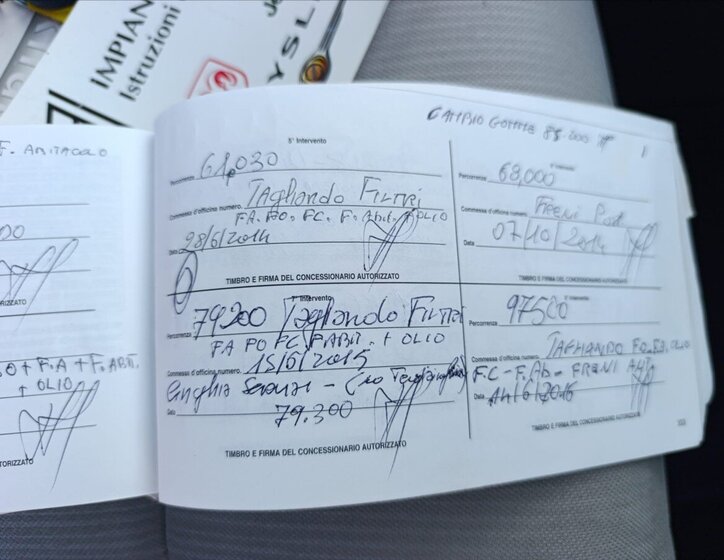 IMPIAN
Istruzioni
YSL
F. ABITACOLO
RIZZATO
+ F.A + F. ABIT.
+ OLIO
TORIZZATO
CAMBIO GOMME 85.000
5° Intervento
Percorrenza 61,030
Commessa d'officina numero Tagliando Filtri
FA. PO. FC. F. Abit. + OLIO
Data 28/6/2014
TIMBRO E FIRMA DEL CONCESSIONARIO AUTORIZZATO
Intervento
Percorrenza 68,000
Commessa d'officina numero Freni Post
Data 07/10/2014
TIMBRO E FIRMA DEL CONCESSIONARIO AUTORIZZATO
7° Intervento
Percorrenza 79200 Tagliando Filtri
FA PO FC F.ABIT. + OLIO
Commessa d'officina numero 15/6/2015
Cinghia
Data 79.300
TIMBRO E FIRMA DEL CONCESSIONARIO AUTORIZZATO
Intervento
Percorrenza 97500
Commessa d'officina numero TAGLIANDO FO. FA. OLIO
F.C - F. Ab. - FRENI ANT
Data
TIMBRO E FIRMA DEL CONCESSIONARIO AUTORIZZATO